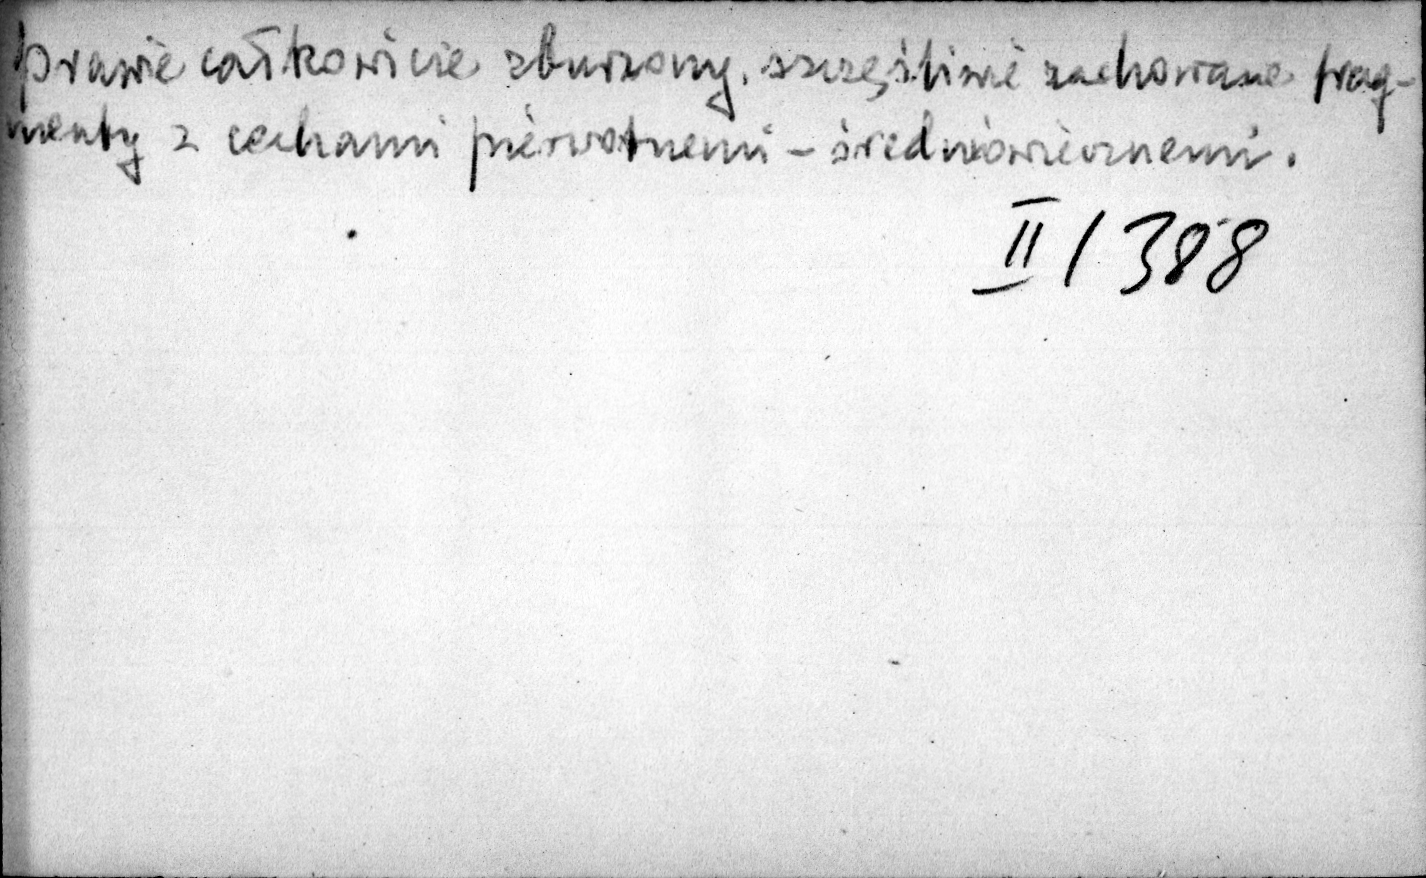 prawie całkowicie zburzony. szczęśliwie zachowane frag-
menty z cechami pierwotnemi – średniowiecznemi.
II/388